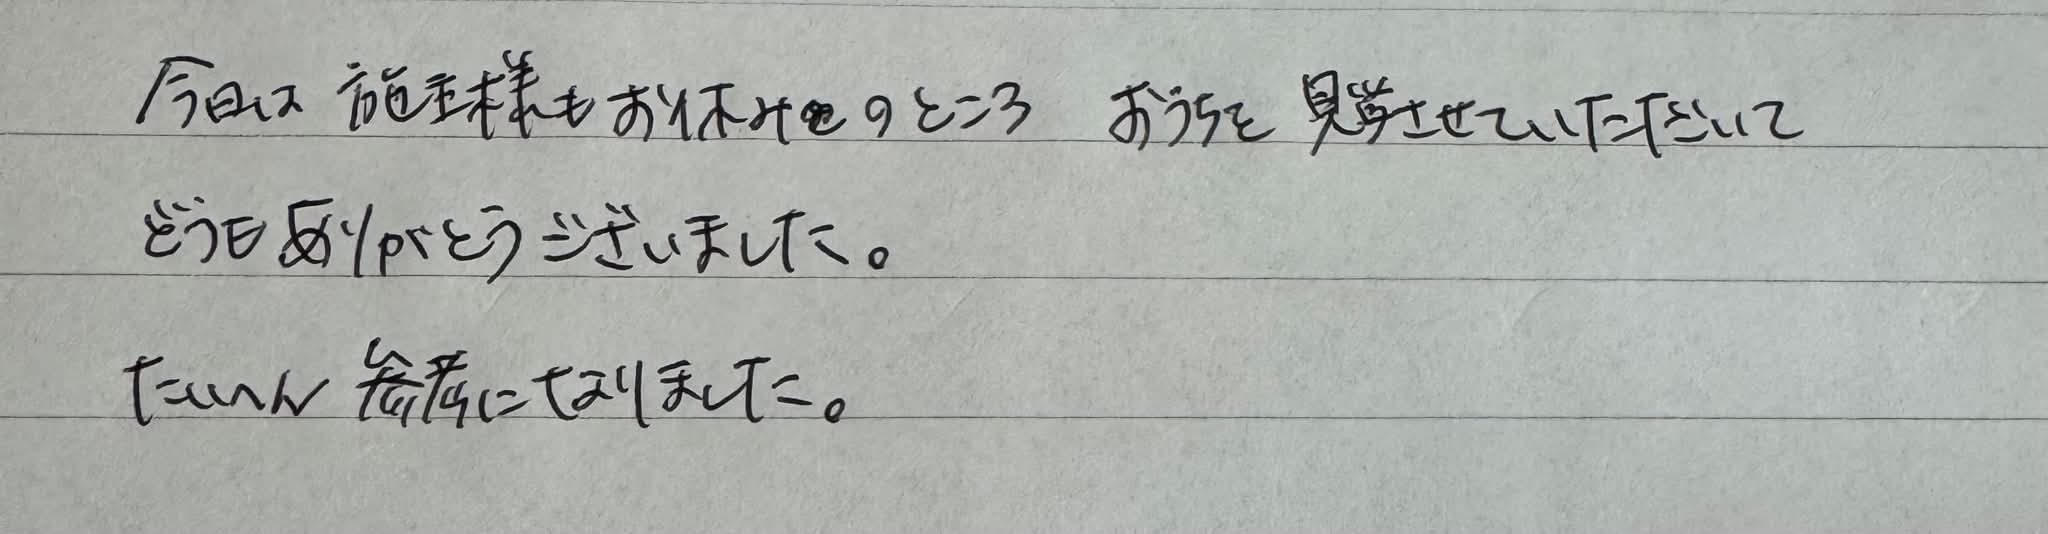 今日は 施主様もお休みのところ おうちを 見学させていただいて
どうもありがとうございました。
たいへん 参考になりました。